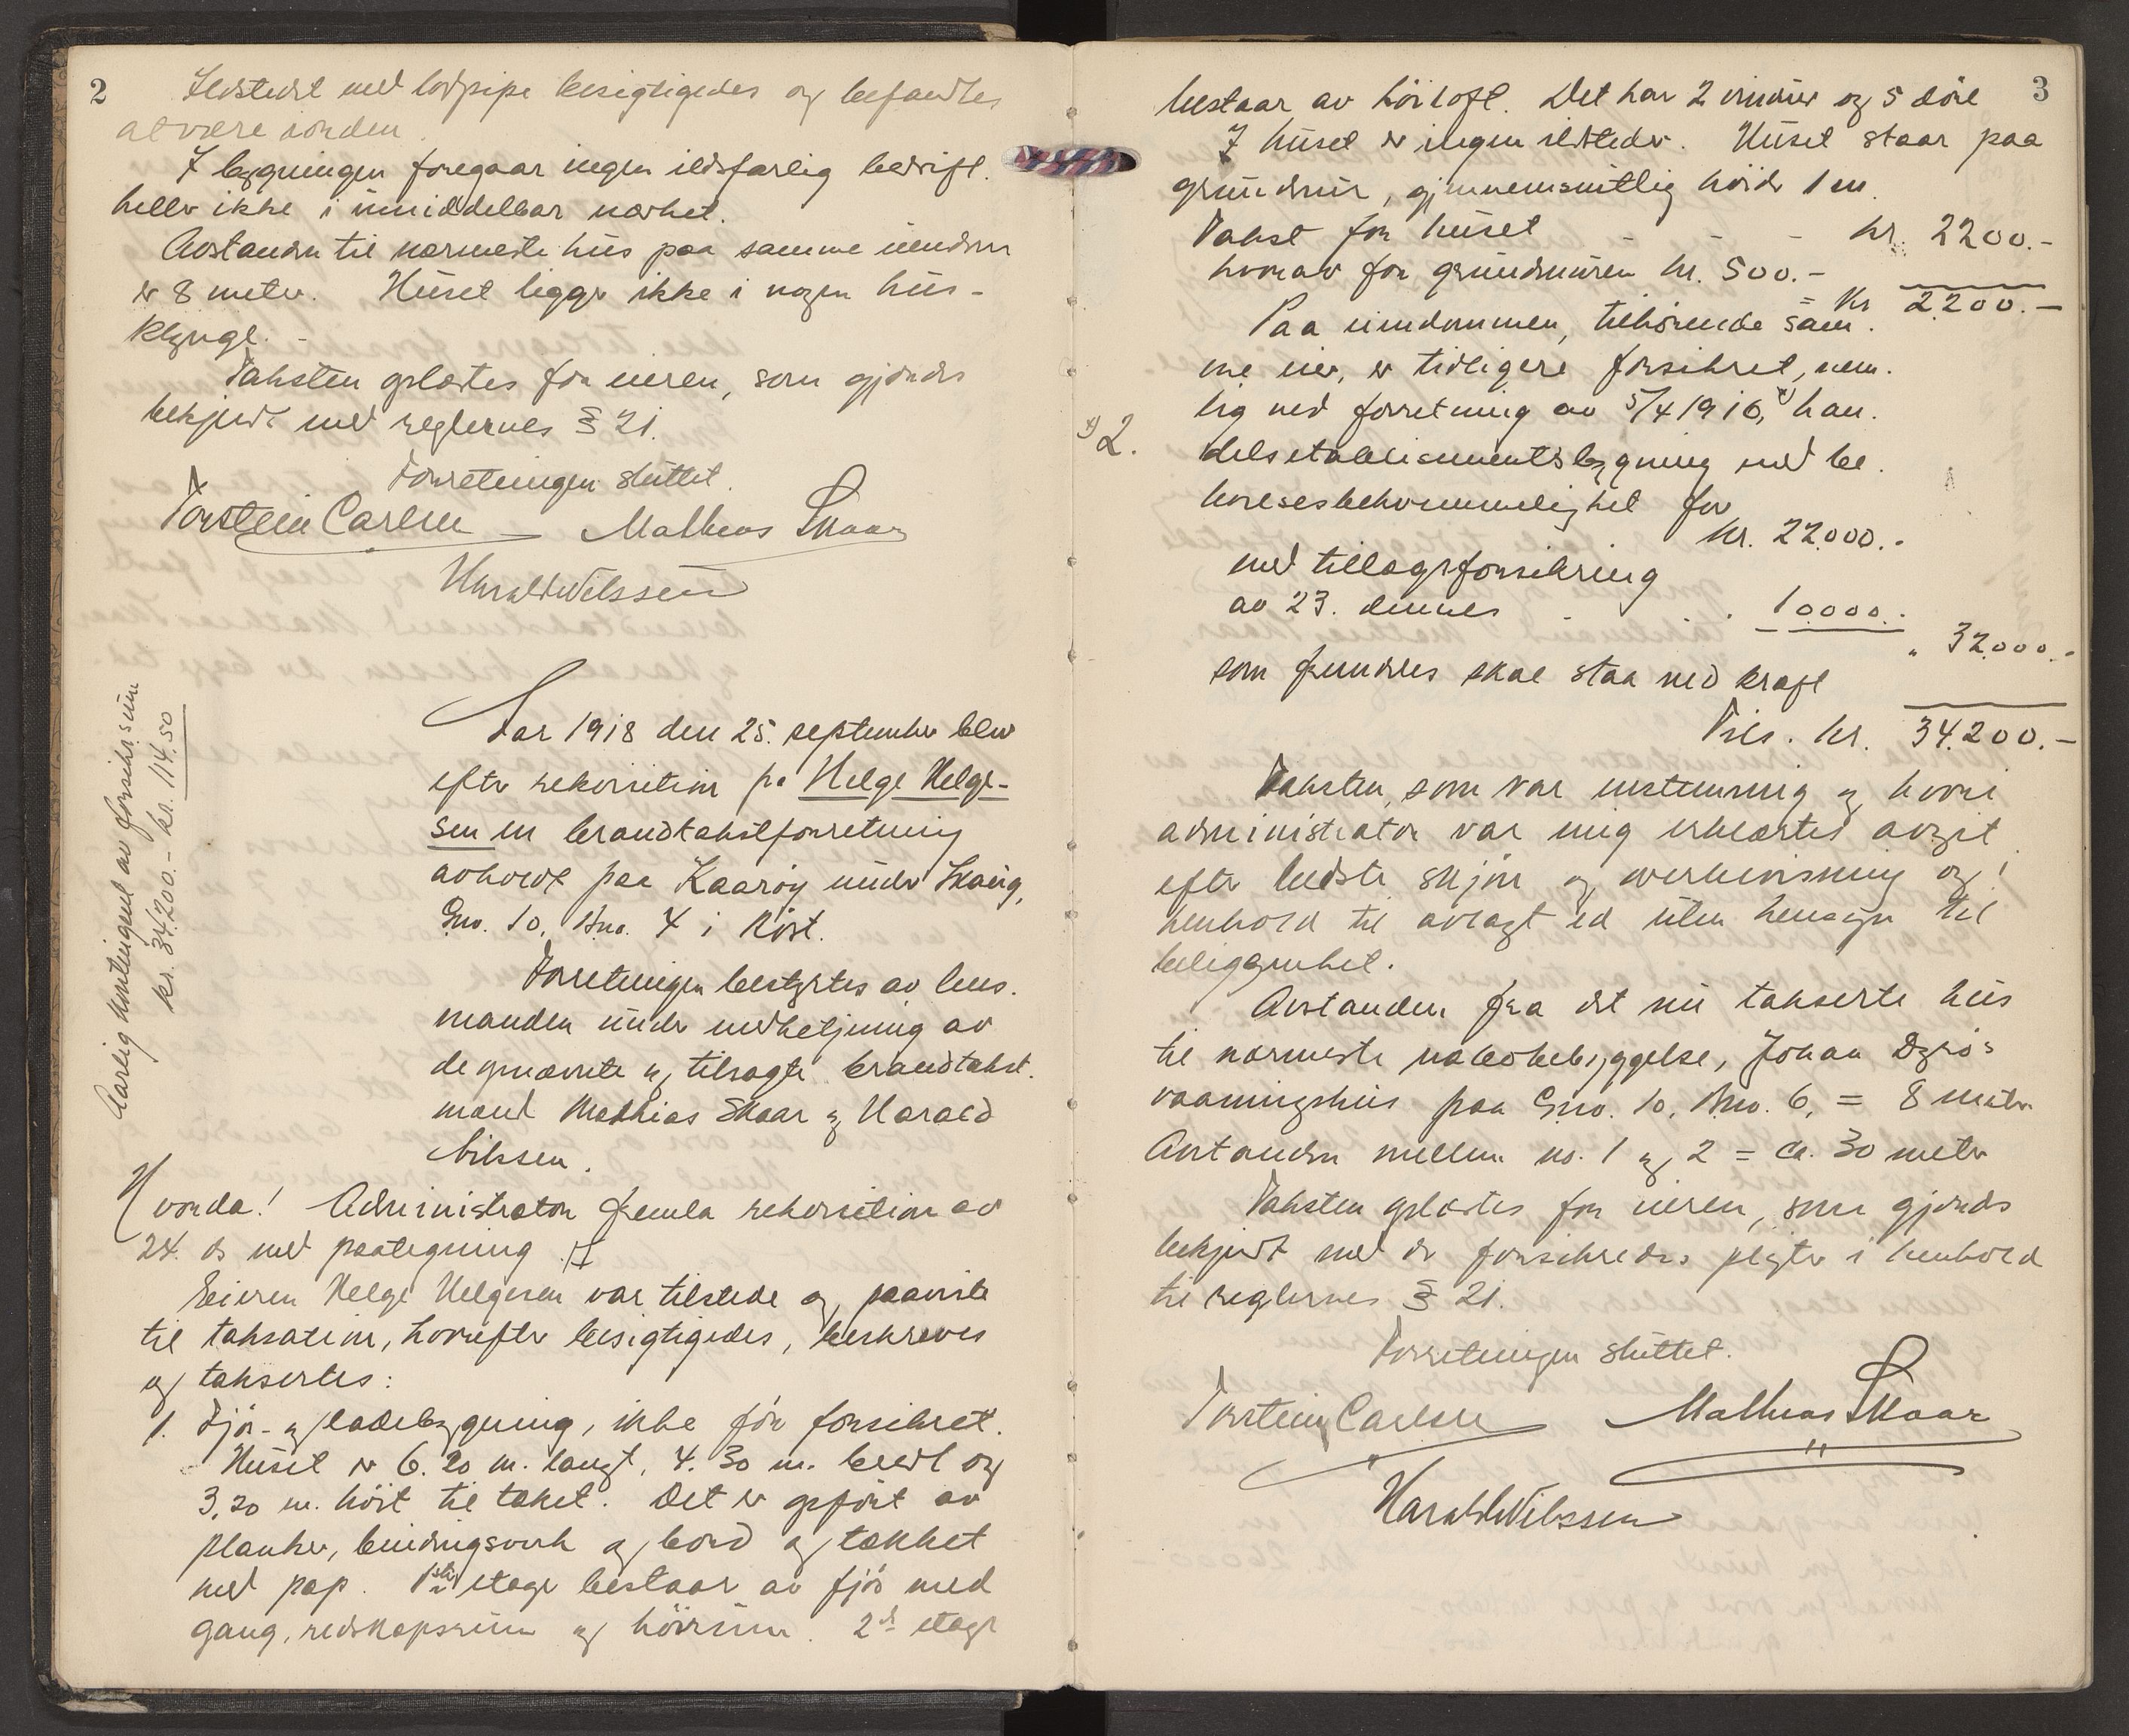 2
Ildstedet med lodpipe besigtigedes og befandtes
at være i orden.
I bygningen foregaar ingen ildsfarlig bedrift.
heller ikke i umiddelbar nærhet.
Avstanden til nærmeste hus paa samme eiendom
er 8 meter. Huset ligger ikke i nogen hus-
klynge. -
Taksten oplæstes for eieren, som gjordes
bekjendt med reglernes § 21.
Forretningen sluttet.
Torstein Carlsen - Mathias Skaar
Harald Nilssen
Aar 1918 den 25. september blev
efter rekvisition fra Helge Helge-
sen en brandtakstforretning
avholdt paa Kaarøy under Skaug,
Gno. 10, Bno. 4 i Røst.
Forretningen bestyrtes av lens.
manden under medhetjening av
de opnævnte og tilsagte brandtakst.
mænd Mathias Skaar og Harald
Nilssen.
Hvorda! Administrator fremla rekvisition av
24. ds med paategning
Eieren Helge Helgesen var tilstede og paaviste
til taksation, hvorefter besigtigedes, beskreves
og taksertes:
1. Fjös- og ladebygning, ikke för forsikret.
Huset er 6.20 m. langt, 4.30 m. bredt og
3,20 m. höit til taket. Det er opfört av
planker, bindingsverk og bord og tækket
med pap. 1ste etage bestaar av fjös med
gang, redskapsrum og höirum. 2de etage
Aarlig kontingent av forsikr.sum
kr. 34.200.- kr. 114.50
3
bestaar av höiloft. Det har 2 vinduer og 5 döre
I huset er ingen ildsteder. Huset staar paa
grundmur, gjennemsnitlig höide 1 m.
Takst for huset - - - kr. 2200.-
hvorav for grundmuren kr. 500.-
= Kr 2.200.-
Paa eiendommen, tilhörende sam.
me eier, er tidligere forsikret, nem.
lig ved forretning av 5/4 1916, x) han.
x) 2.
delsetablisementsbygning med be.
boelsesbekvemmelighet for
kr. 22.000.-
med tillægsforsikring
av 23. dennes . . 10.000.-
" 32.000.-
som fremdeles skal staa ved kraft
Tils. kr. 34.200.-
Taksten, som var enstemmig og hvori
administrator var enig erklærtes avgit
efter bedste skjön og overbevisning og i
henhold til avlagt ed uten hensyn til
beliggenhet.
Avstanden fra det nu takserte hus
til nærmeste nabobebyggelse, Johan Dyrö's
vaaningshus paa Gno. 10, Bno. 6, = 8 meter
Avstanden mellem no. 1 og 2 = ca. 30 meter
Taksten oplæstes for eieren, som gjordes
bekjendt med de forsikredes pligter i henhold
til reglernes § 21.
Forretningen sluttet.
Torstein Carlsen Mathias Skaar
Harald Nilssen